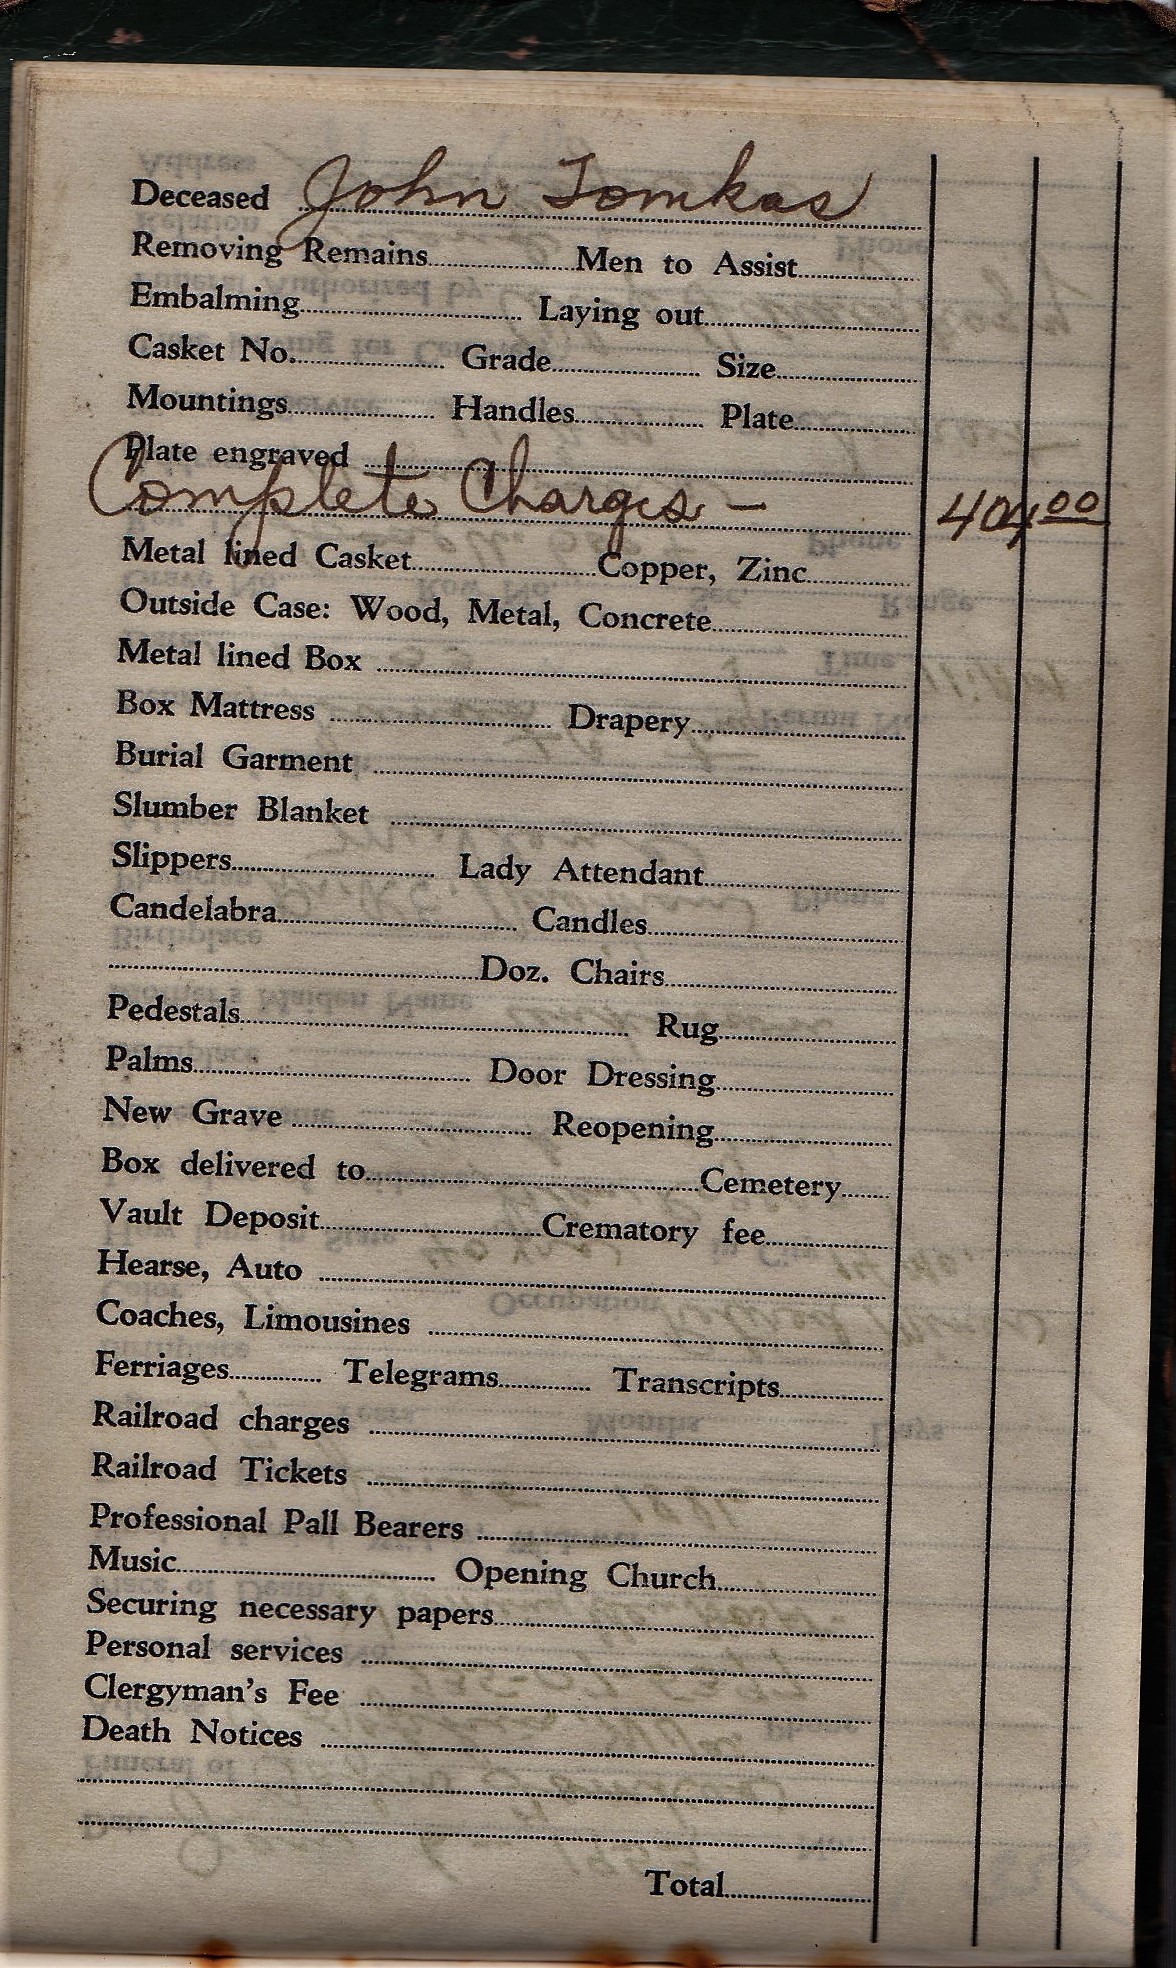 Deceased John Tomkas
Removing Remains Men to Assist
Embalming Laying out
Casket No. Grade Size
Mountings Handles Plate
Plate engraved
Complete Charges - 404 00
Metal lined Casket Copper, Zinc
Outside Case: Wood, Metal, Concrete
Metal lined Box
Box Mattress Drapery
Burial Garment
Slumber Blanket
Slippers Lady Attendant
Candelabra Candles
Doz. Chairs
Pedestals Rug
Palms Door Dressing
New Grave Reopening
Box delivered to Cemetery
Vault Deposit Crematory fee
Hearse, Auto
Coaches, Limousines
Ferriages Telegrams Transcripts
Railroad charges
Railroad Tickets
Professional Pall Bearers
Music Opening Church
Securing necessary papers
Personal services
Clergyman's Fee
Death Notices
Total